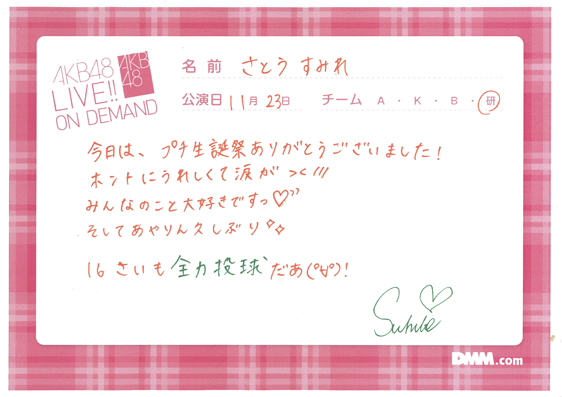 AKB48
LIVE!!
ON DEMAND
AKB
48
名前 さとう すみれ
公演日 11月 23日 チーム A・K・B・研
今日は、プチ生誕祭ありがとうございました!
ホントにうれしくて涙が ><///
みんなのこと大好きですっ♡”
そしてあやりん久しぶり
16さいも全力投球だあ(°∀°)!
DMM.com